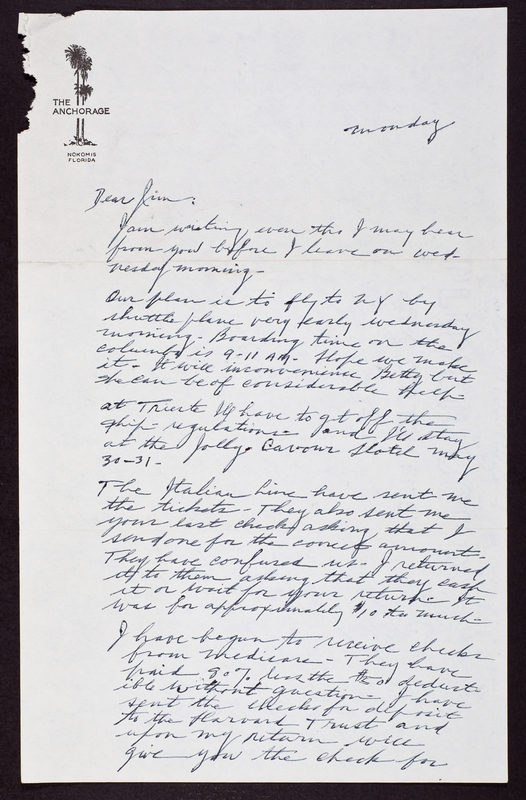 THE
ANCHORAGE
NOKOMIS
FLORIDA
Monday
Dear Jim:
I am writing, even tho I may hear
from you before I leave on Wed-
nesday morning -
Our plan is to fly to NY by
shuttle plane very early Wednesday
morning - Boarding time on the
Columbo is 9-11 AM. Hope we make
it - It will inconvenience Betty but
she can be of considerable help -
At Trieste I'll have to get off the
ship - regulations - and I'll stay
at the Jolly-Cavour Hotel May
30-31 -
The Italian Line have sent me
the tickets - They also sent me
your last check, asking that I
send one for the correct amount -
They have confused us - I returned
it to them asking that they cash
it or wait for your return. It
was for approximately $10 too much -
I have begun to receive checks
from Medicare - They have
paid 80% less the $50 deduct-
ible without question - I have
sent the checks for deposit
to the Harvard Trust and
upon my return will
give you the check for